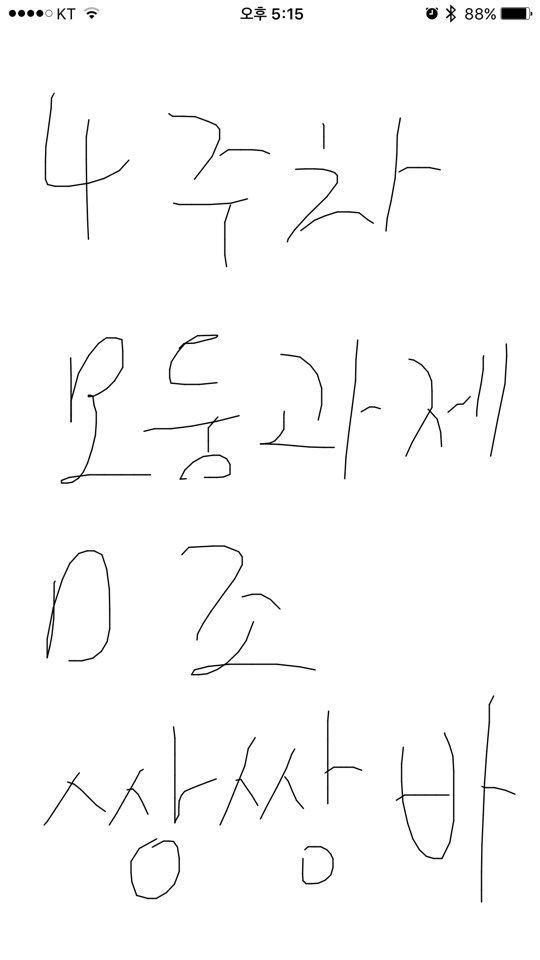 KT 오후 5:15 88%
4주차
모둠과제
D조
쌍쌍바